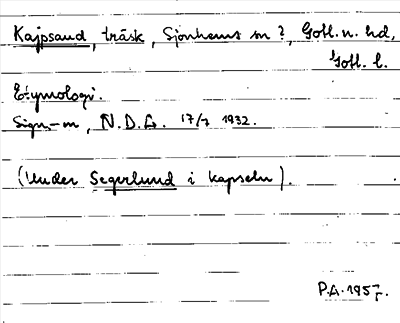 Kajpsand, träsk, Sjonhems sn?, Gotl. n. hd,
Gotl. l.
Etymologi.
Sign-m, N.D.G. 17/7 1932.
(Under Segerlund i kapseln).
P.A. 1957.